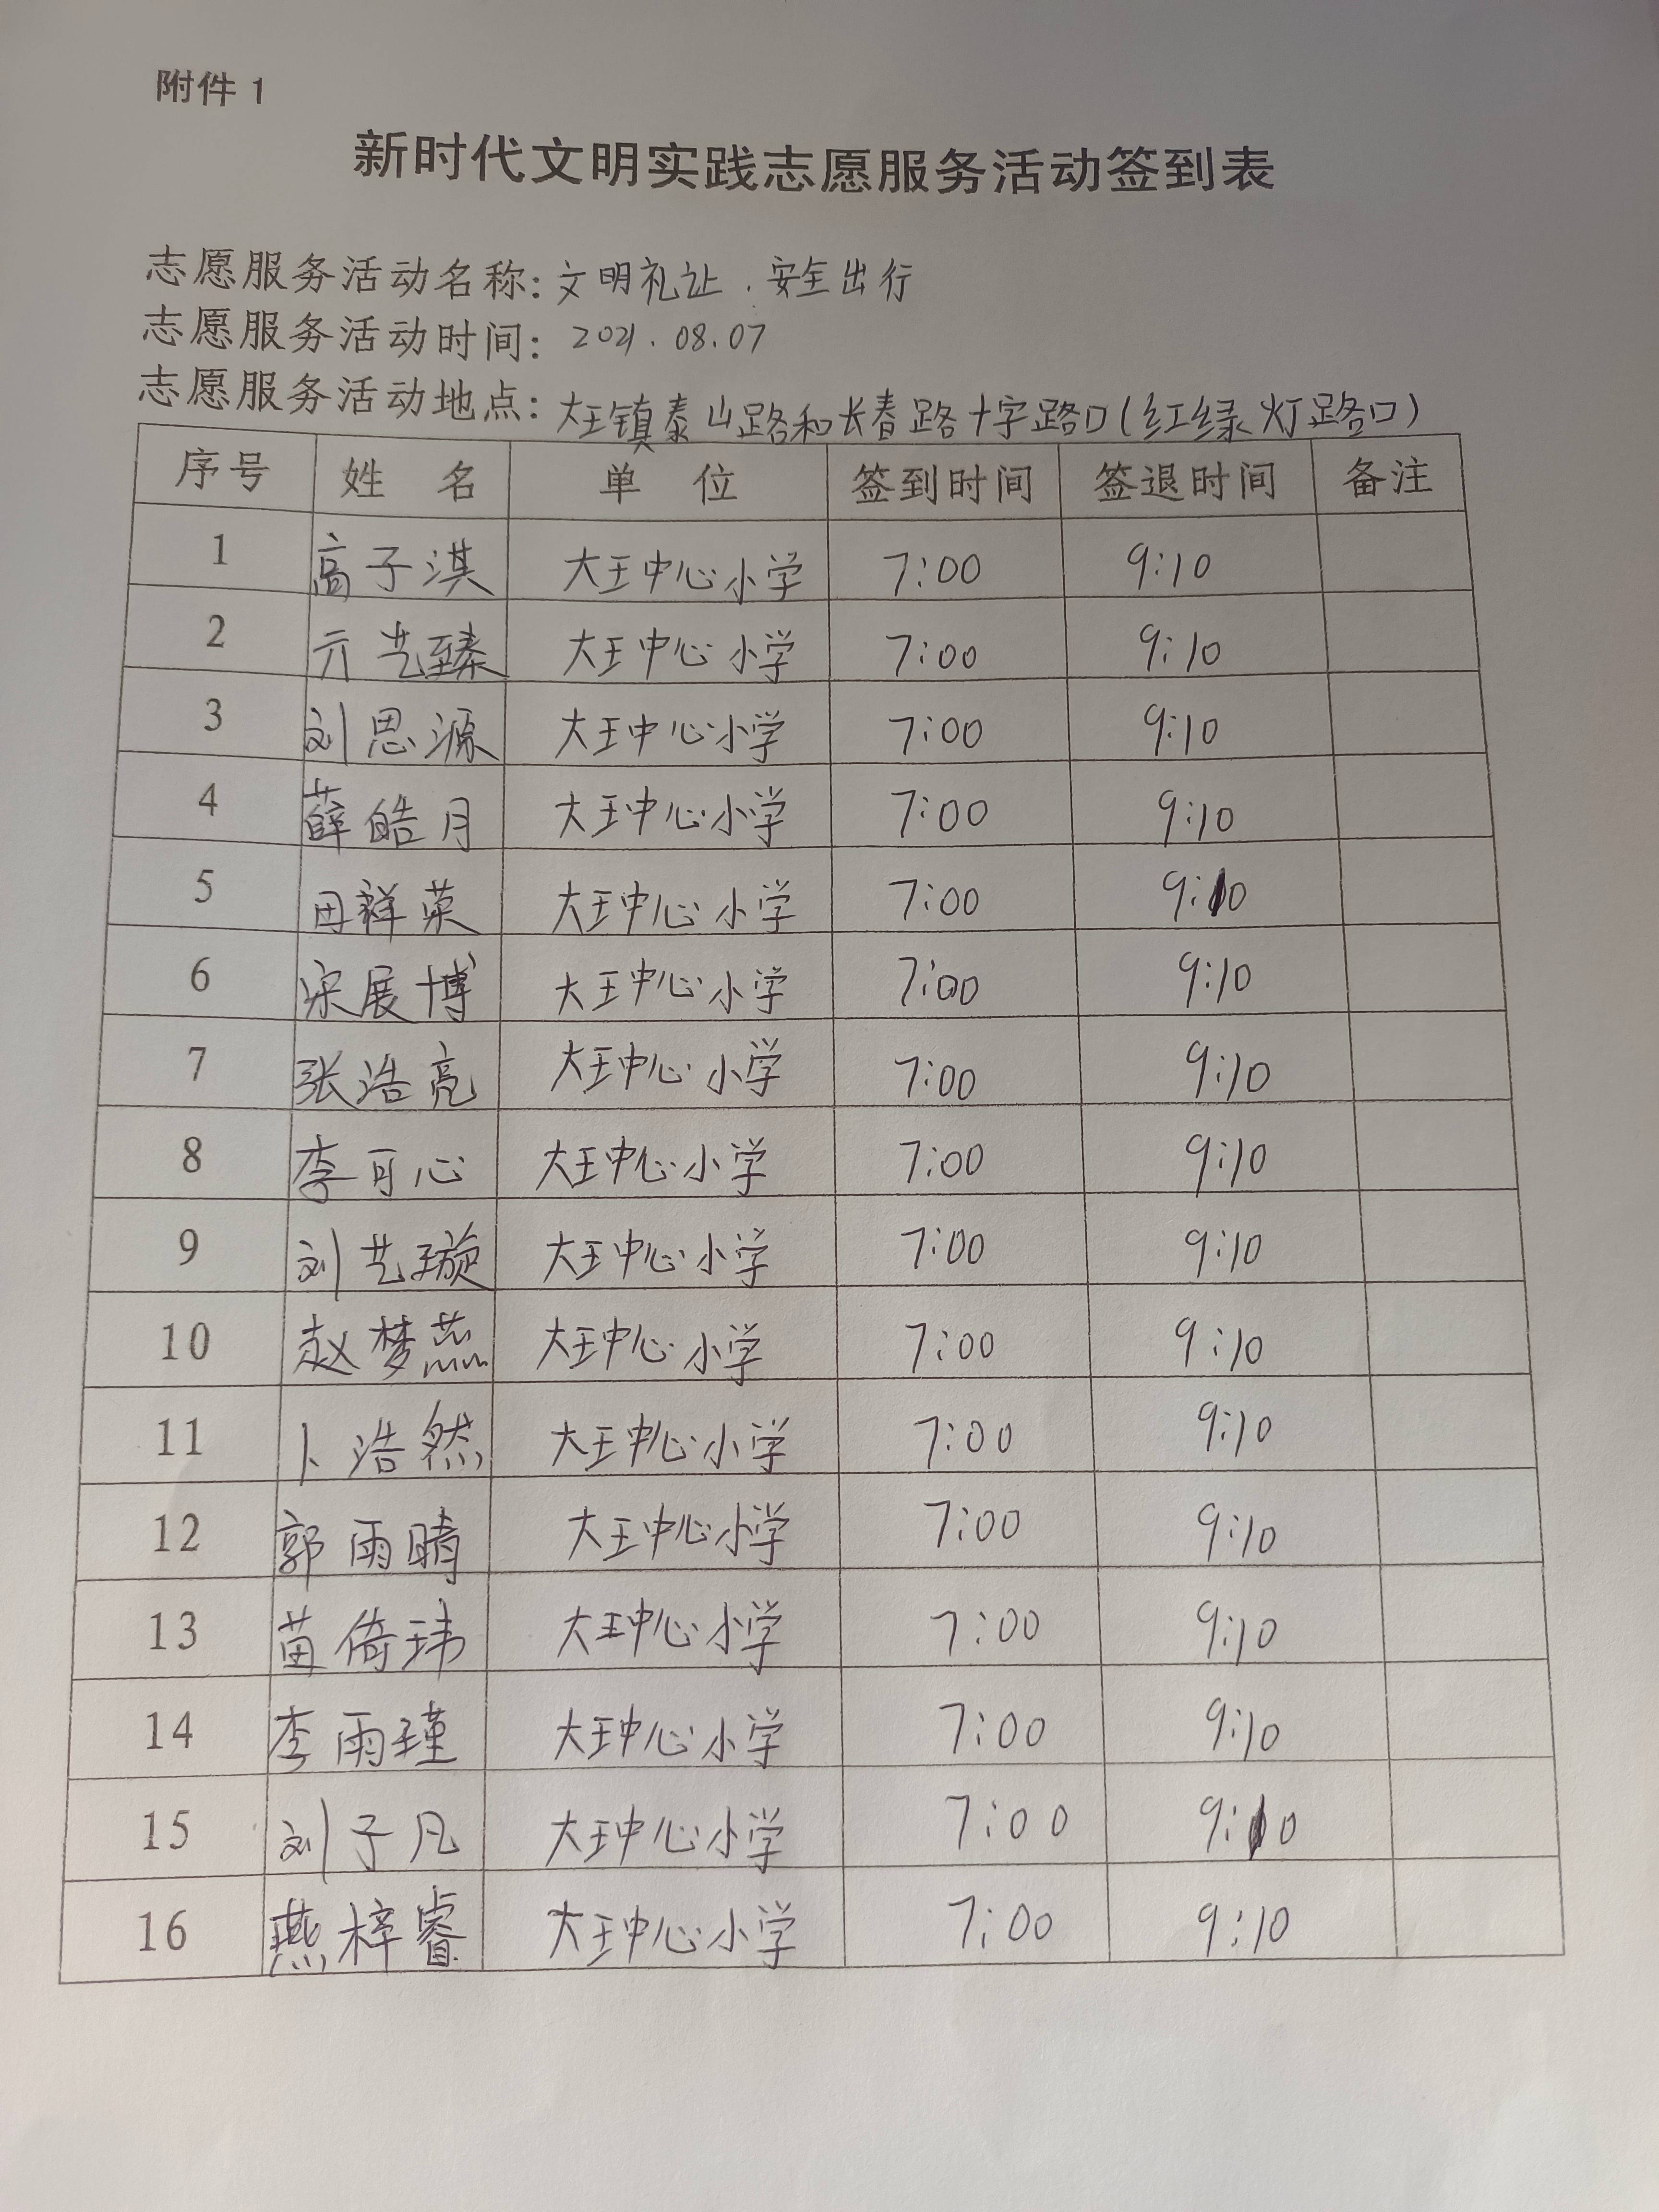 附件 1
新时代文明实践志愿服务活动签到表
志愿服务活动名称: 文明礼让.安全出行
志愿服务活动时间: 2021.08.07
志愿服务活动地点: 大王镇泰山路和长春路十字路口(红绿灯路口)
序号 姓 名 单 位 签到时间 签退时间 备注
1 高子淇 大王中心小学 7:00 9:10
2 亓艺臻 大王中心小学 7:00 9:10
3 刘思源 大王中心小学 7:00 9:10
4 薛皓月 大王中心小学 7:00 9:10
5 田祥荣 大王中心小学 7:00 9:10
6 宋展博 大王中心小学 7:00 9:10
7 张浩亮 大王中心小学 7:00 9:10
8 李可心 大王中心小学 7:00 9:10
9 刘艺璇 大王中心小学 7:00 9:10
10 赵梦燕 大王中心小学 7:00 9:10
11 卜浩然 大王中心小学 7:00 9:10
12 郭雨晴 大王中心小学 7:00 9:10
13 苗倚玮 大王中心小学 7:00 9:10
14 李雨瑾 大王中心小学 7:00 9:10
15 刘子凡 大王中心小学 7:00 9:10
16 燕梓睿 大王中心小学 7:00 9:10